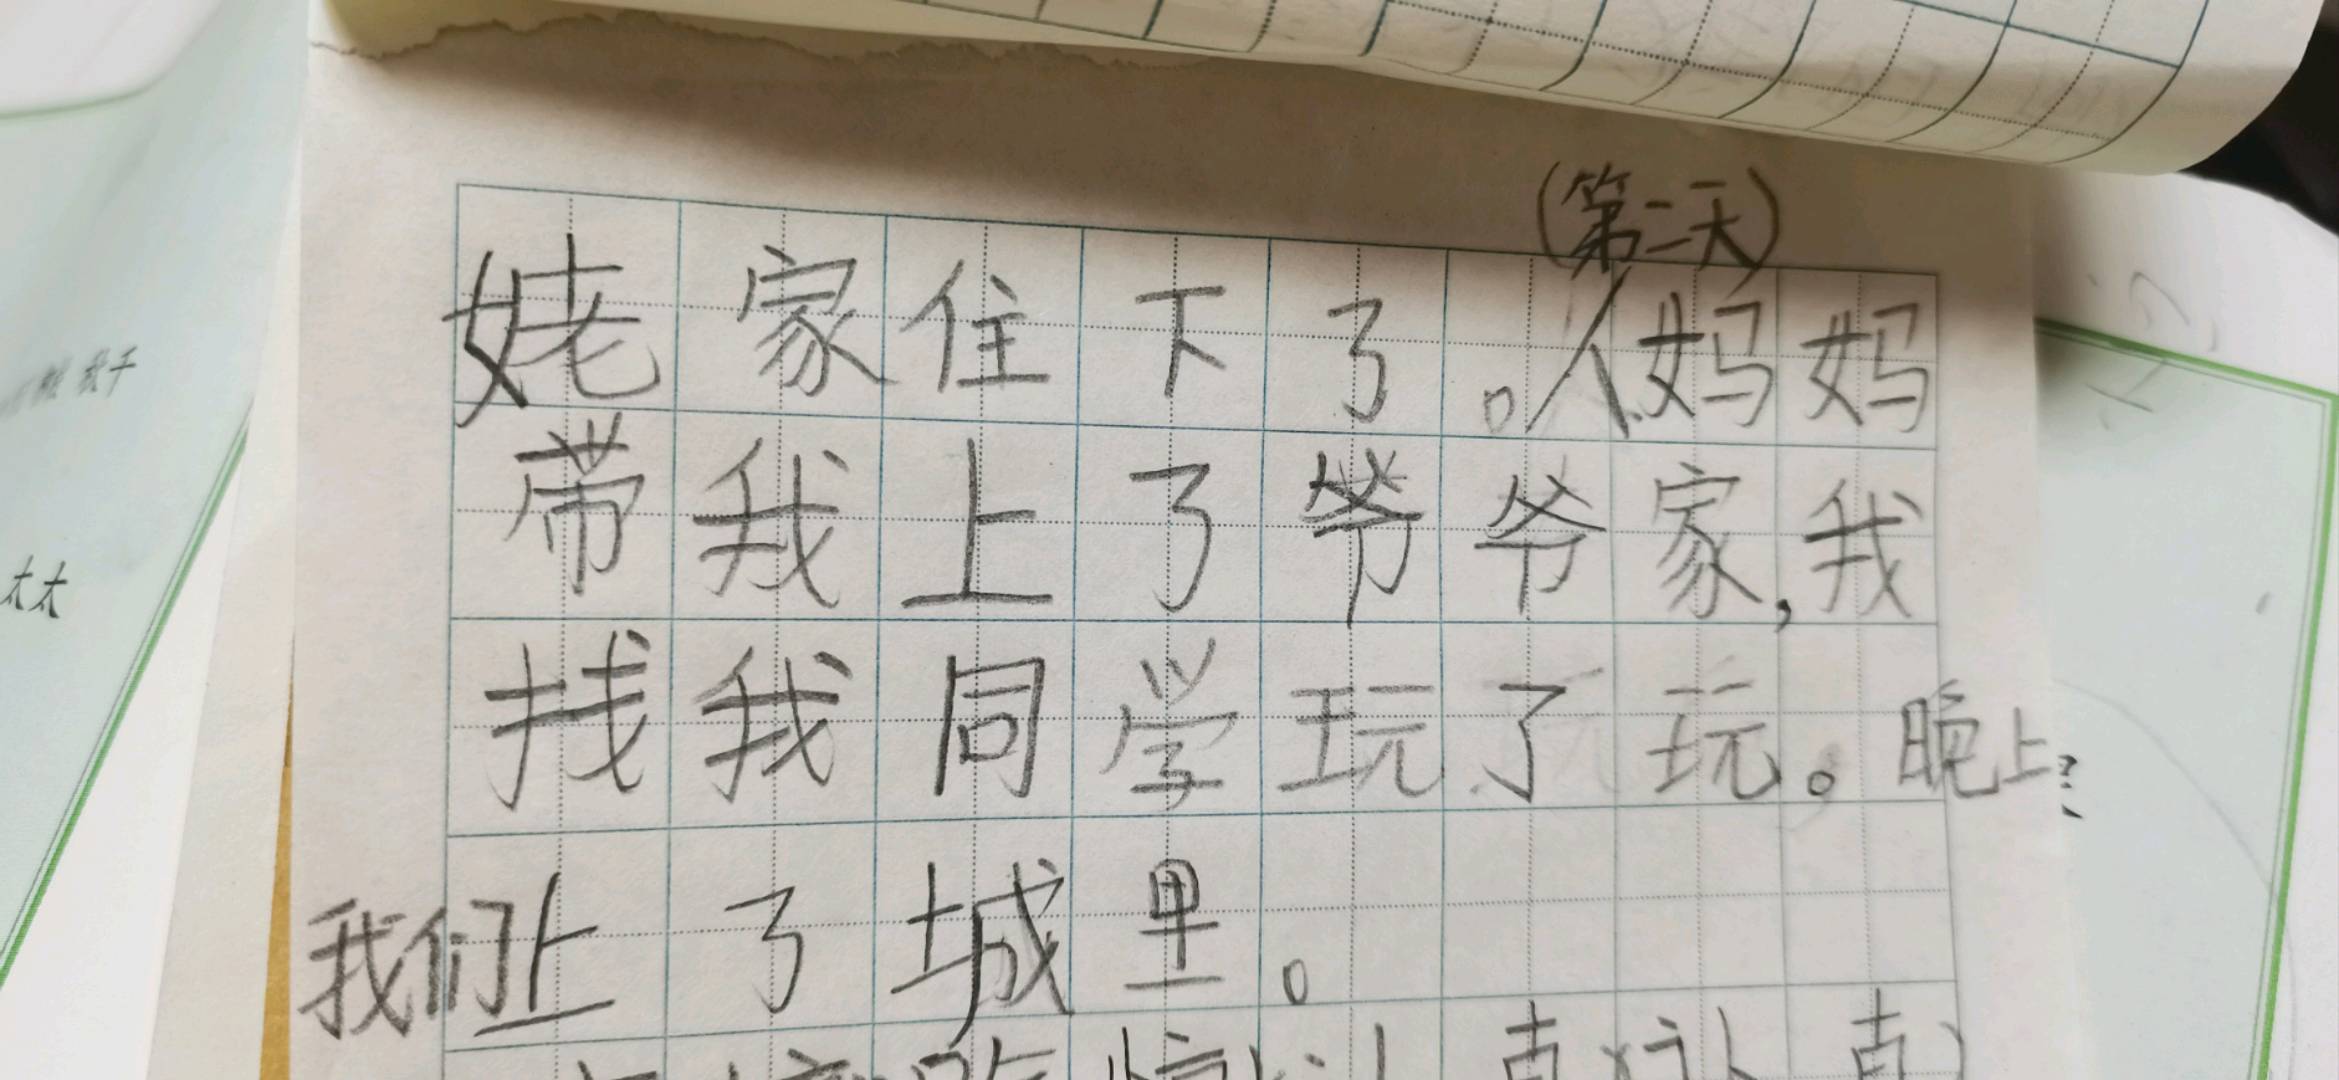 姥家住下了。(第二天)妈妈
带我上了爷爷家,我
找我同学玩了玩。晚上
我们上了城里。
太太